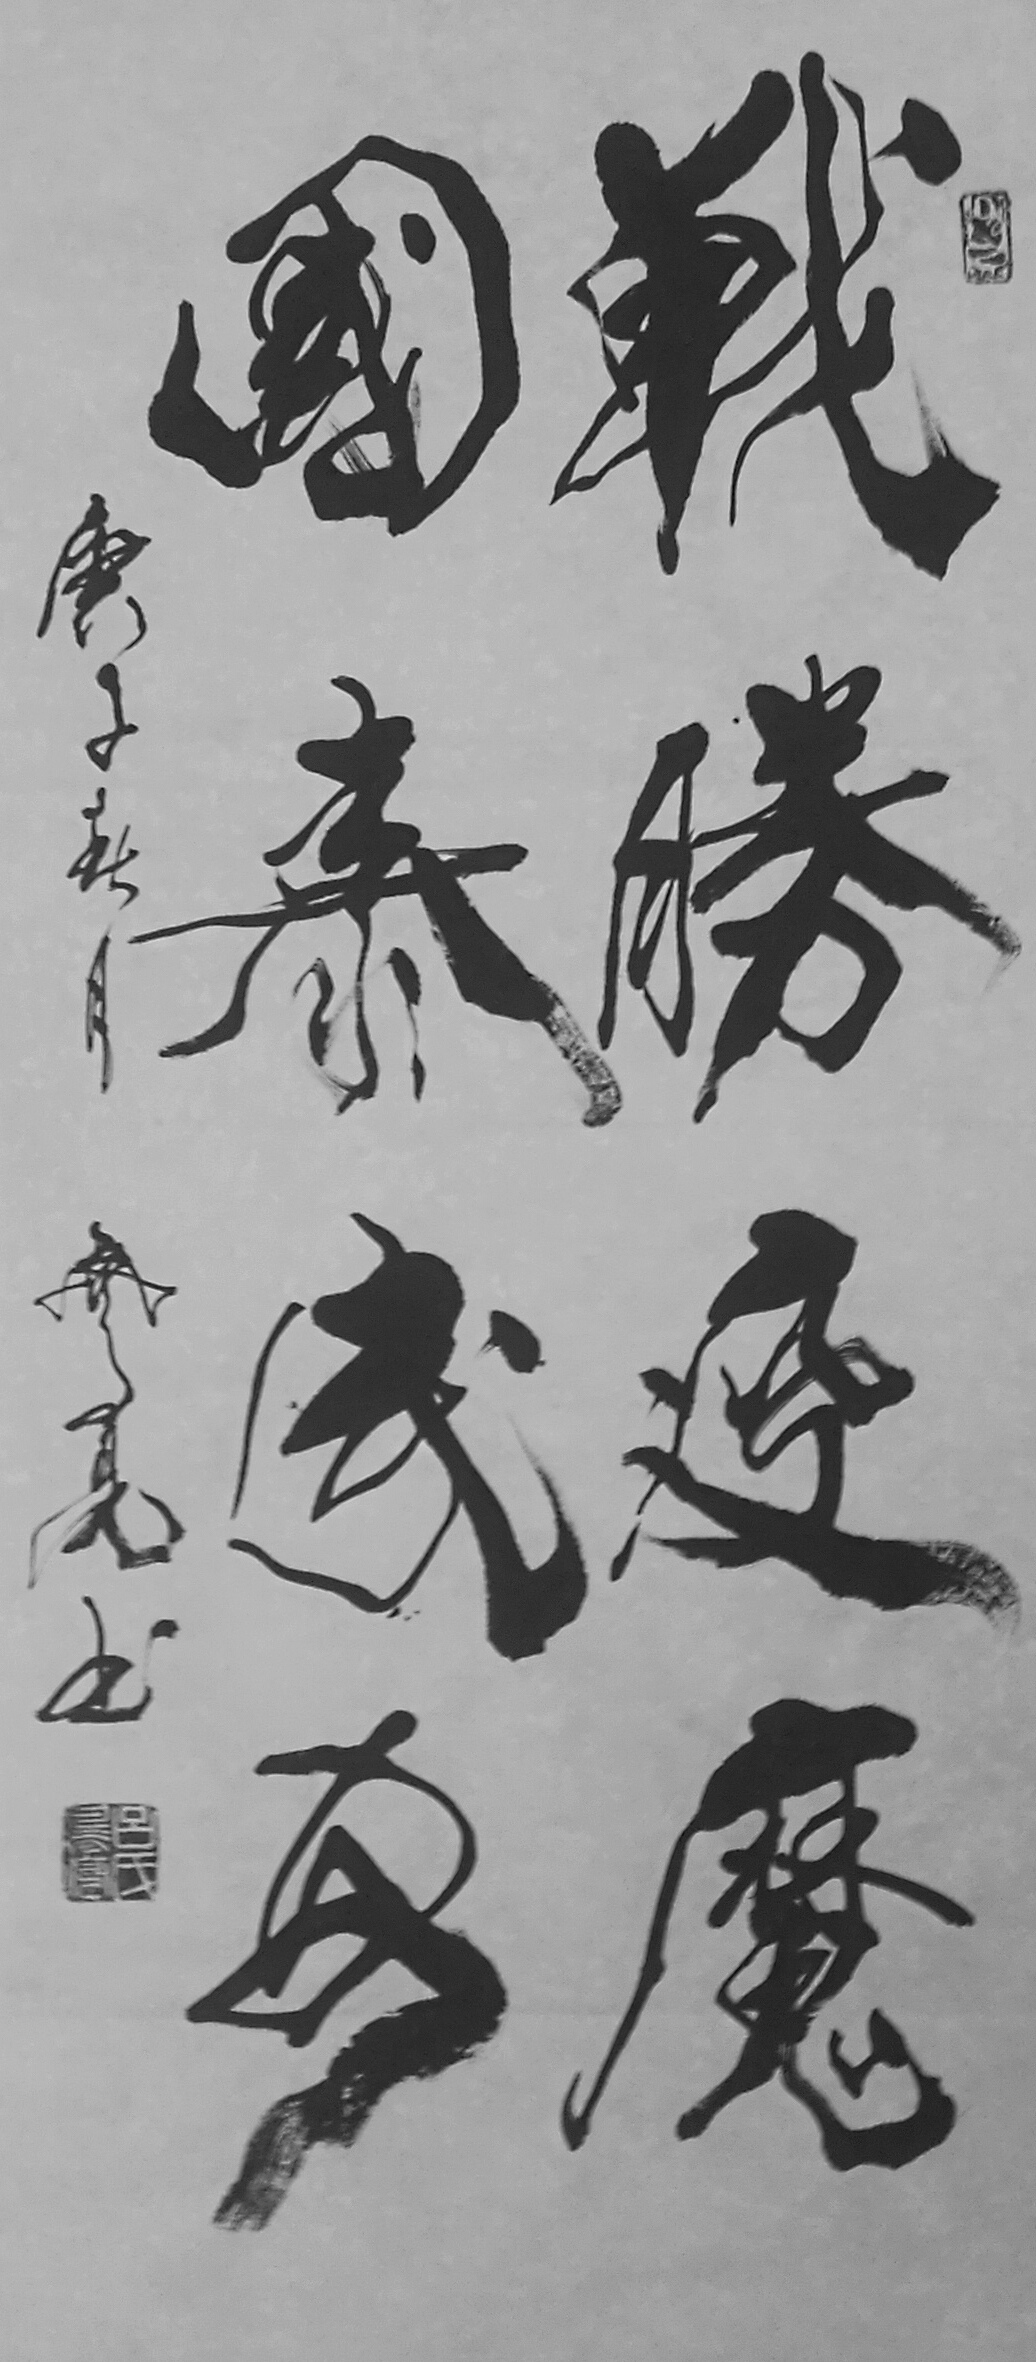 戰勝疫魔
國泰民安
庚子春月 書